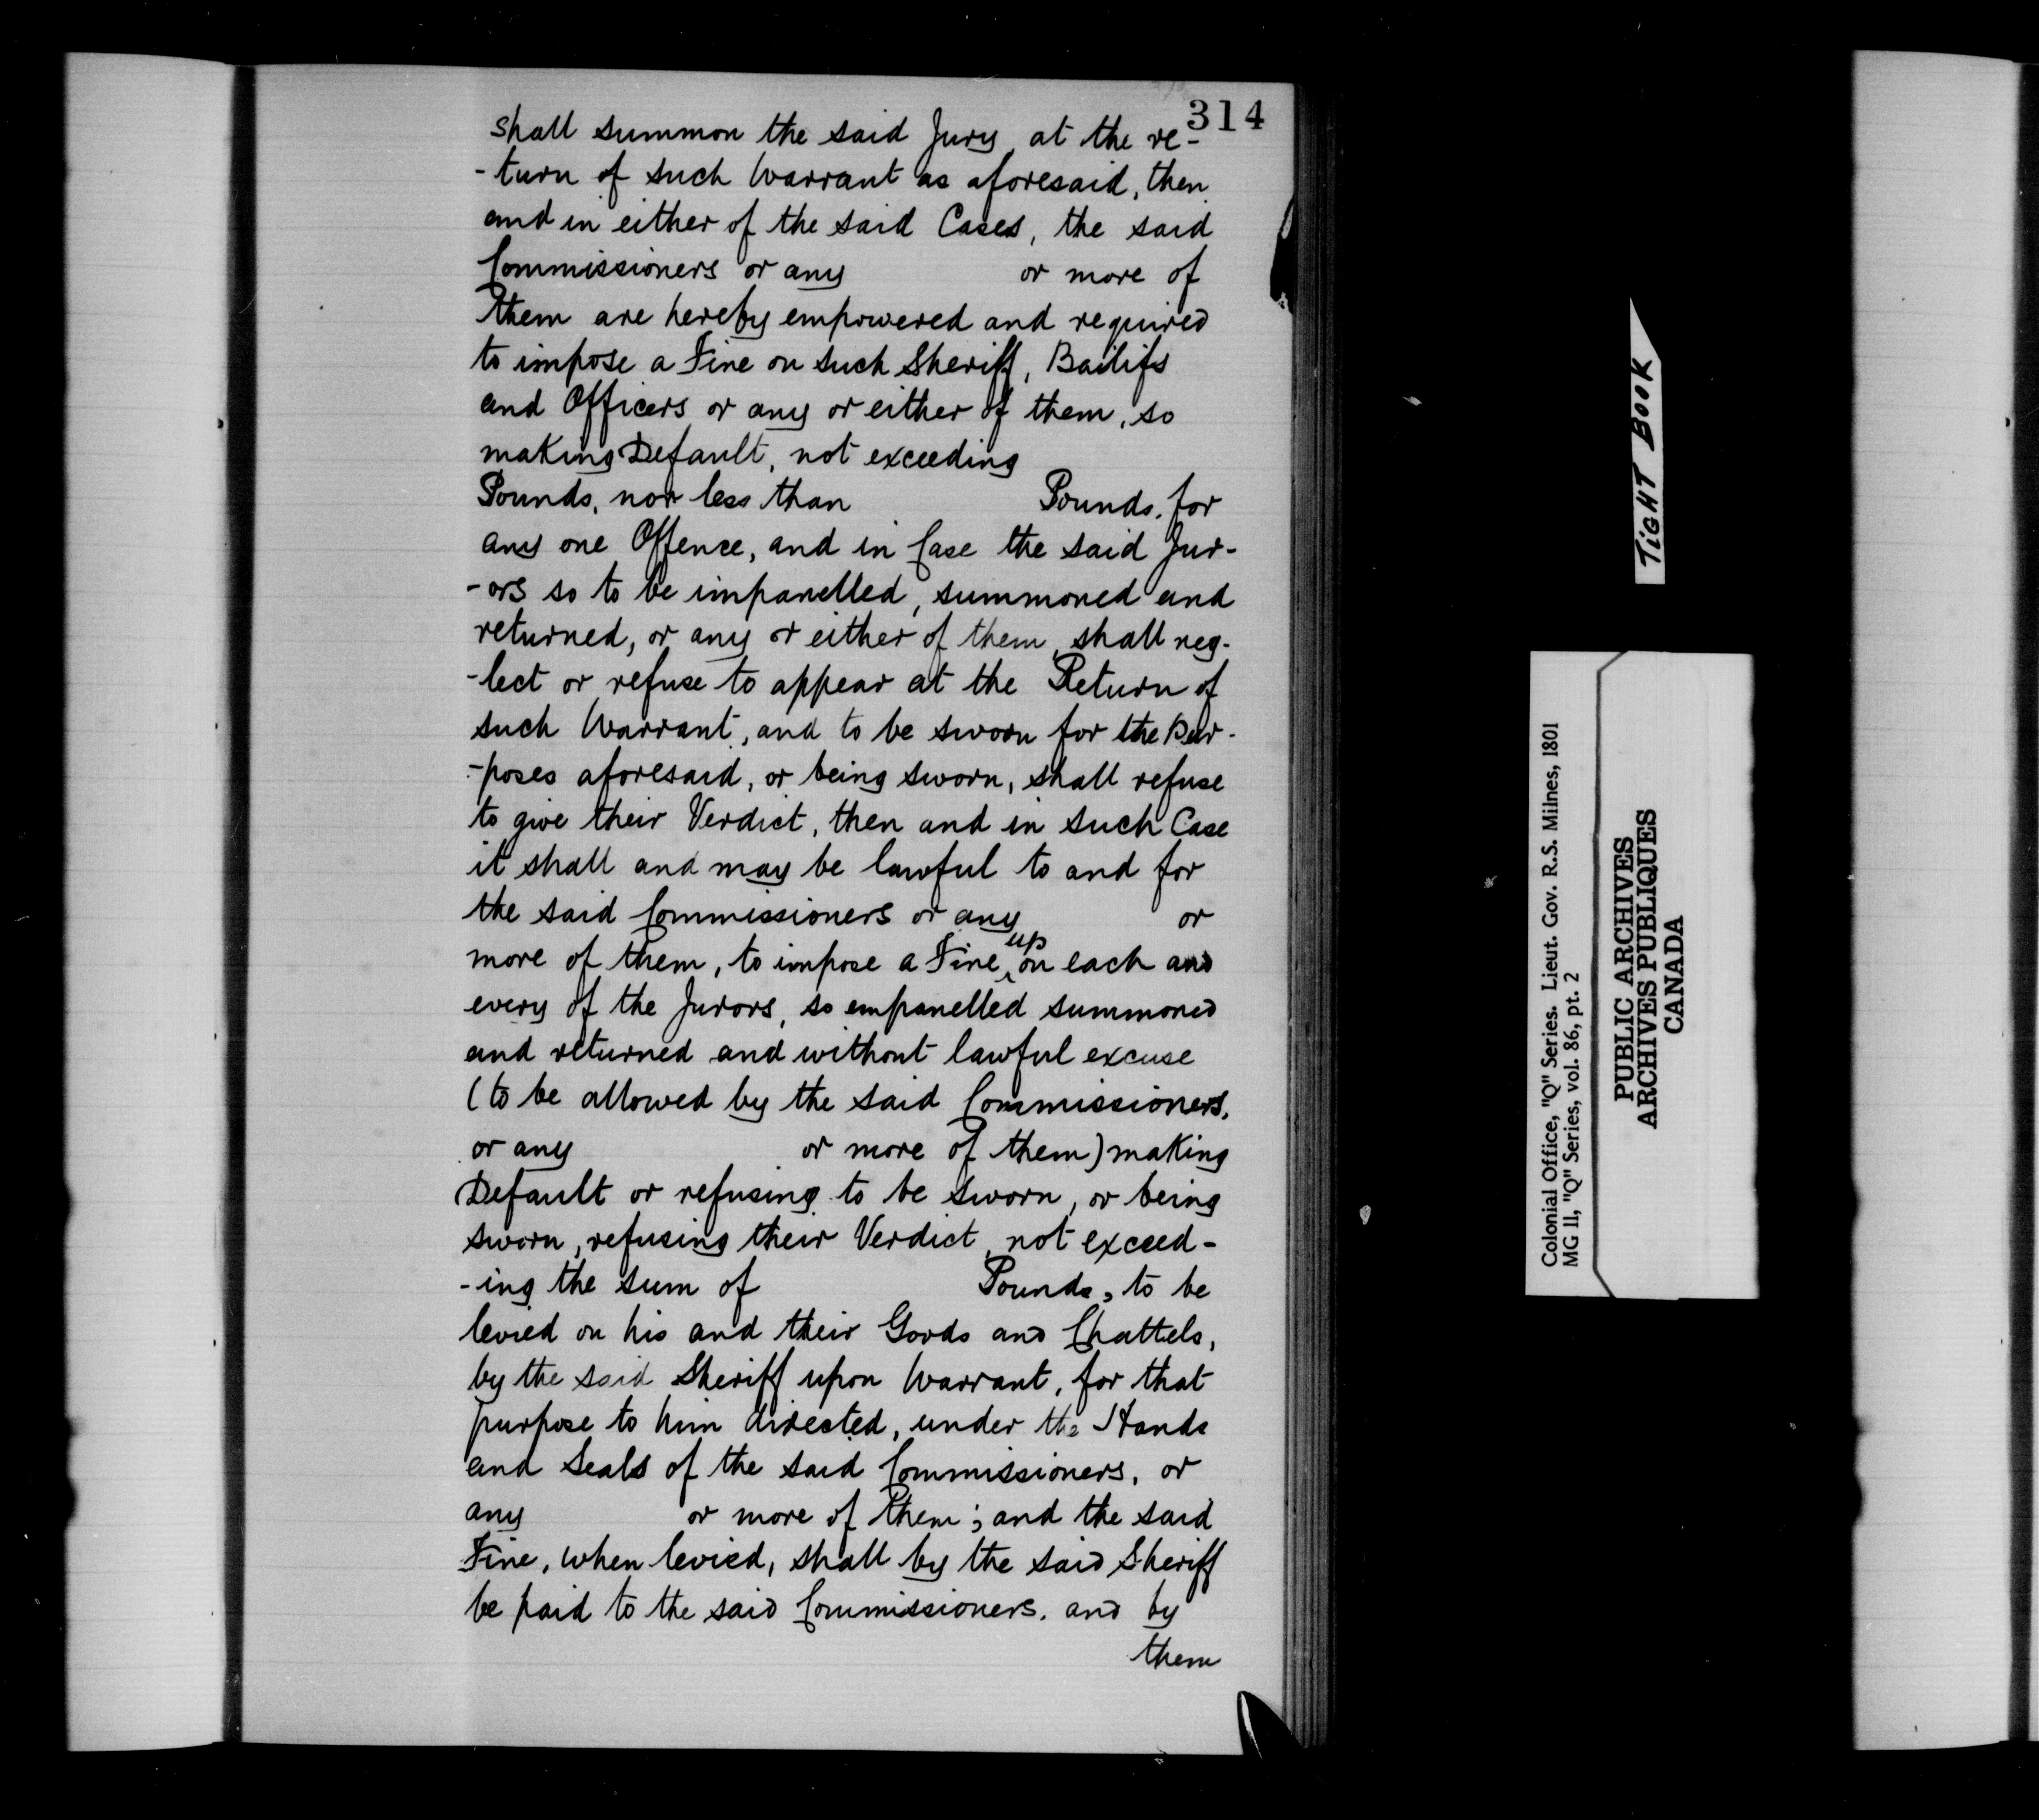 314
shall summon the said Jury at the re-
-turn of such Warrant as aforesaid, then
and in either of the said Cases, the said
Commissioners or any or more of
them are hereby empowered and required
to impose a Fine on such Sheriff, Bailifs
and Officers or any or either of them, so
making Default, not exceeding
Pounds, nor less than Pounds, for
any one Offence, and in Case the said Jur-
-ors so to be impanelled, summoned and
returned, or any or either of them, shall neg-
-lect or refuse to appear at the Return of
such Warrant, and to be sworn for the Pur-
-poses aforesaid, or being sworn, shall refuse
to give their Verdict, then and in such Case
it shall and may be lawful to and for
the said Commissioners or any or
more of them, to impose a Fine upon each and
every of the Jurors, so empanelled summoned
and returned and without lawful excuse
(to be allowed by the said Commissioners,
or any or more of them) making
Default or refusing to be sworn, or being
sworn, refusing their Verdict, not exceed-
-ing the sum of Pounds, to be
levied on his and their Goods and Chattels,
by the said Sheriff upon Warrant, for that
purpose to him directed, under the Hands
and Seals of the said Commissioners, or
any or more of them; and the said
Fine, when levied, shall by the said Sheriff
be paid to the said Commissioners. and by
them
TIGHT BOOK
Colonial Office, "Q" Series. Lieut. Gov. R.S. Milnes, 1801
MG 11, "Q" Series, vol. 86, pt. 2
PUBLIC ARCHIVES
ARCHIVES PUBLIQUES
CANADA